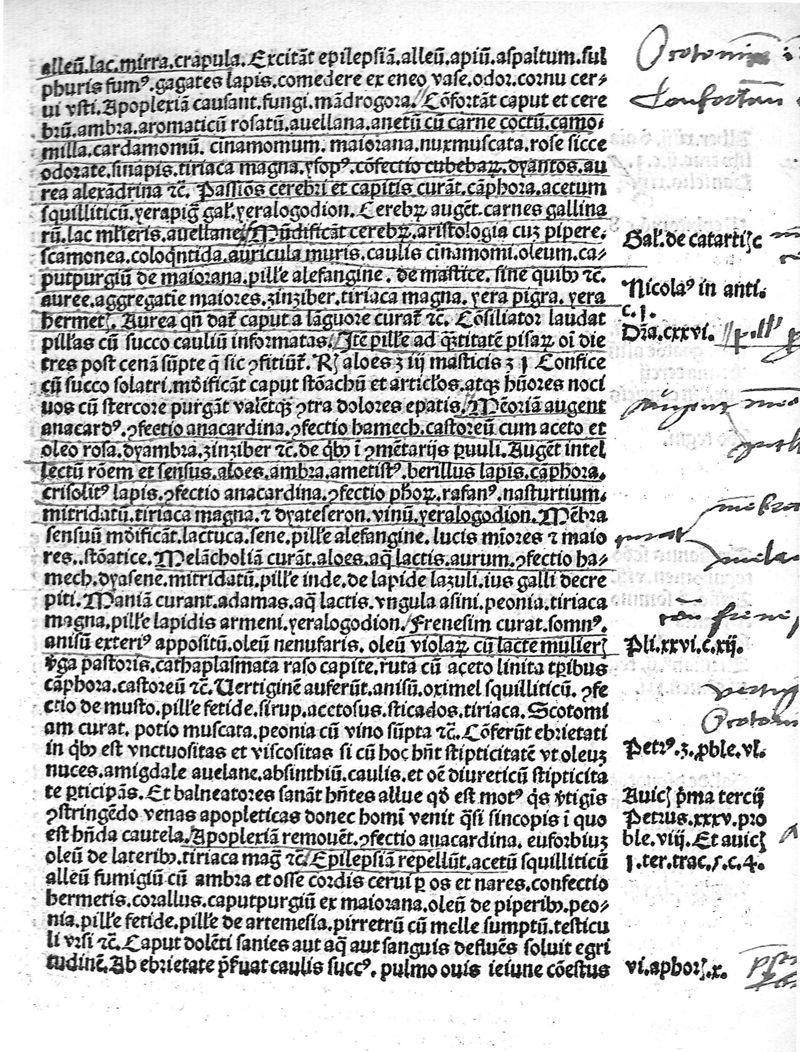 alleū.lac.mirra.crapula. Excitāt epilepsiā.alleū.apiū.aspaltum.sul
phuris fumꝰ.gagates lapis.comedere ex eneo vase.odor.cornu cer⸗
ui vsti. Apoplexiā causant.fungi.mādrogora. Cōfortāt caput et cere
brū.ambra.aromaticū rosatū.auellana.anetū cū carne coctū.camo⸗
milla.cardamomū. cinamomum. maiorana.nuxmuscata.rose sicce
odorate.sinapis.tiriaca magna.ysopꝰ.cōfectio cubebaꝝ.dyantos.au
rea alexādrina ⁊c. Passiōs cerebri et capitis curāt.cāphora.acetum
squilliticū.yerapigᷓ gal̄.yeralogodion. Cerebꝝ augēt.carnes gallina
rū.lac ml̄ieris.auellane. Mūdificāt cerebꝝ.aristologia cuꝫ pipere.
scamonea.coloqͥntida.auricula muris.caulis cinamomi.oleum.ca⸗
putpurgiū de maiorana.pill̄e alefangine. de mastice. sine quibꝰ ⁊c.
auree.aggregatie maiores.zinziber.tiriaca magna. yera pigra. yera
hermetꝭ. Aurea qn̄ dat̄ caput a lāguore curat̄ ⁊c. Cōsiliator laudat
pill̄as cū succo cauliū informatas. Itē pill̄e ad qᷓtitatē pisaꝝ oī die
tres post cenā sūpte qͥ sic ꝯfitiūt̄. R͛ aloes ʒ iij masticis ʒ ı Confice
cū succo solatri.mōificāt caput stōachū et articl̄os.atqꝫ hūores noci
uos cū stercore purgāt valētqꝫ ꝯtra dolores epatis. Mēoriā augent
anacardꝰ.ꝯfectio anacardina.ꝯfectio hamech.castoreū cum aceto et
oleo rosa.dyambra.zinziber ⁊c. de qͥbꝰ ī ꝯmētarijs ꝑuuli. Augēt intel
lectū rōem et sensus.aloes.ambra.ametistꝰ.berillus lapis.cāphora.
crisolitꝰ lapis.ꝯfectio anacardina.ꝯfectio ph̄oꝝ.rafanꝰ.nasturtium.
mitridatū.tiriaca magna.⁊ dyateseron.vinū.yeralogodion. Mēbra
sensuū mōificāt.lactuca.sene.pill̄e alefangine. lucis miores ⁊ maio
res..stōatice. Melācholiā curāt.aloes.aqᷓ lactis.aurum.ꝯfectio ha⸗
mech.dyasene.mitridatū.pill̄e inde.de lapide lazuli.ius galli decre
piti. Maniā curant.adamas.aqᷓ lactis.vngula asini.peonia.tiriaca
magna.pill̄e lapidis armeni.yeralogodion. Frenesim curat.somnꝰ.
anisū exteriꝰ appositū.oleū nenufaris. oleū violaꝝ cū lacte mulierꝭ
v̄ga pastoris.cathaplasmata raso capite.ruta cū aceto linita tp̄ibus
cāphora.castoreū ⁊c. Uertiginē auferūt.anisū.oximel squilliticū. ꝯfe
ctio de musto.pill̄e fetide.sirup.acetosus.sticados.tiriaca. Scotomi
am curat. potio muscata.peonia cū vino sūpta ⁊c. Cōferūt ebrietati
in qͥbꝰ est vnctuositas et viscositas si cū hoc hn̄t stipticitatē vt oleuꝫ
nuces.amigdale auelane.absinthiū.caulis.et oē diureticū stipticita
te ꝑticipās. Et balneatores sanāt hn̄tes allue qd̄ est motꝰ qͥs v̄tigīs
ꝯstringēdo venas apopleticas donec homī venit qͣsi sincopis ī quo
est hn̄da cautela. Apoplexiā remouēt.ꝯfectio anacardina. euforbiuꝫ
oleū de lateribꝰ.tiriaca magᷓ ⁊c. Epilepsiā repellūt.acetū squilliticū
alleū fumigiū cū ambra et osse cordis cerui ꝑ os et nares.confectio
hermetis.corallus.caputpurgiū ex maiorana.oleū de piperibꝰ.peo⸗
nia.pill̄e fetide.pill̄e de artemesia.pirretrū cū melle sumptū.testicu
li vrsi ⁊c. Caput dolēti sanies aut aqᷓ aut sanguis defluēs soluit egri
tudinē. Ab ebrietate p̄ẜuat caulis succꝰ. pulmo ouis ieiune cōestus
Confortant
Gal̄.de catartiꝭc
Nicolaꝰ in anti.
c.ı.
Dr̄a.cxxvi.
Augent
curat
Pli.xxvi.c.xij.
Petrꝰ.3.ꝓble.vl.
Auicꝭ p̄ma tercij
Petrus.xxxv.pro
ble.viij. Et auicꝭ
ı.ter.trac.5.c.4.
vi.aphorꝭ.x.